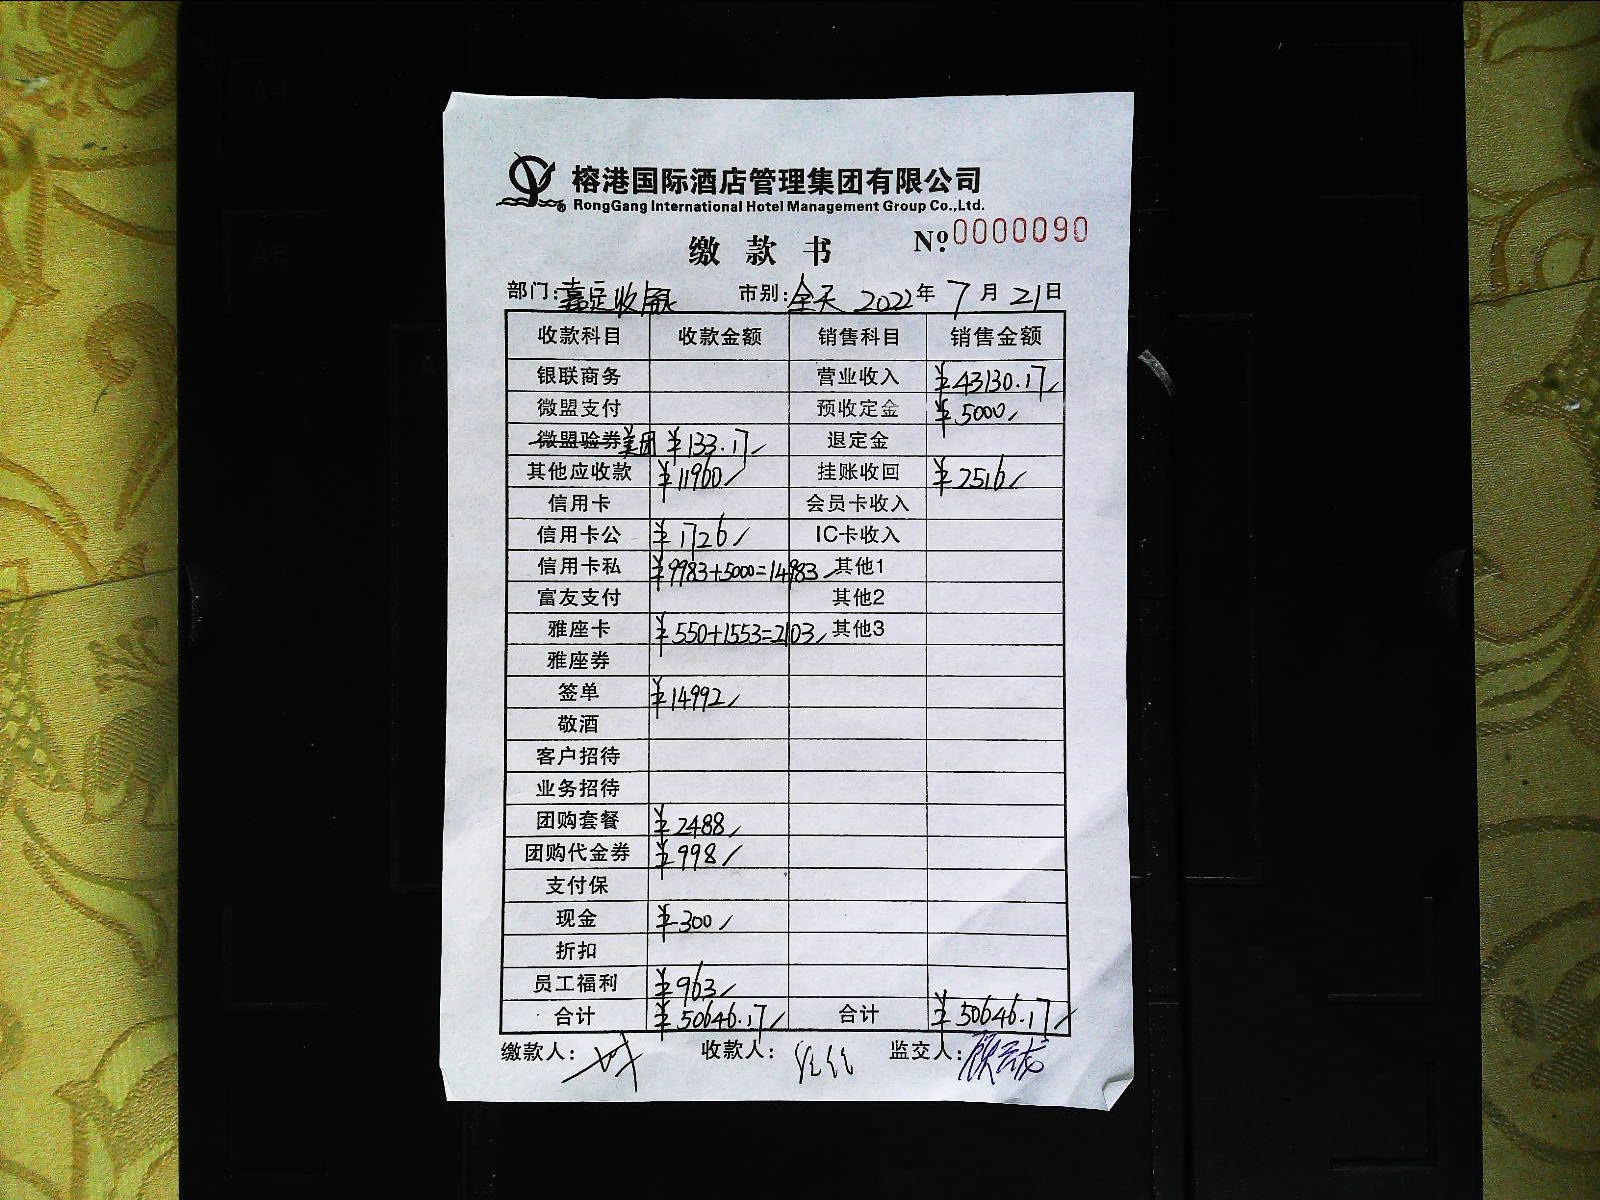 榕港国际酒店管理集团有限公司
RongGang International Hotel Management Group Co.,Ltd.
缴款书 Nº 0000090
部门:嘉定收银 市别:全天 2022年7月21日
收款科目 收款金额 销售科目 销售金额
银联商务 营业收入 ¥43130.17
微盟支付 预收定金 ¥5000
微盟验券 美团 ¥133.17 退定金
其他应收款 ¥11960 挂账收回 ¥2516
信用卡 会员卡收入
信用卡公 ¥1726 IC卡收入
信用卡私 ¥9983+5000=14983 其他1
富友支付 其他2
雅座卡 ¥550+1553=2103 其他3
雅座券
签单 ¥14992
敬酒
客户招待
业务招待
团购套餐 ¥2488
团购代金券 ¥998
支付保
现金 ¥300
折扣
员工福利 ¥963
合计 ¥50646.17 合计 ¥50646.17
缴款人: 收款人: 监交人: